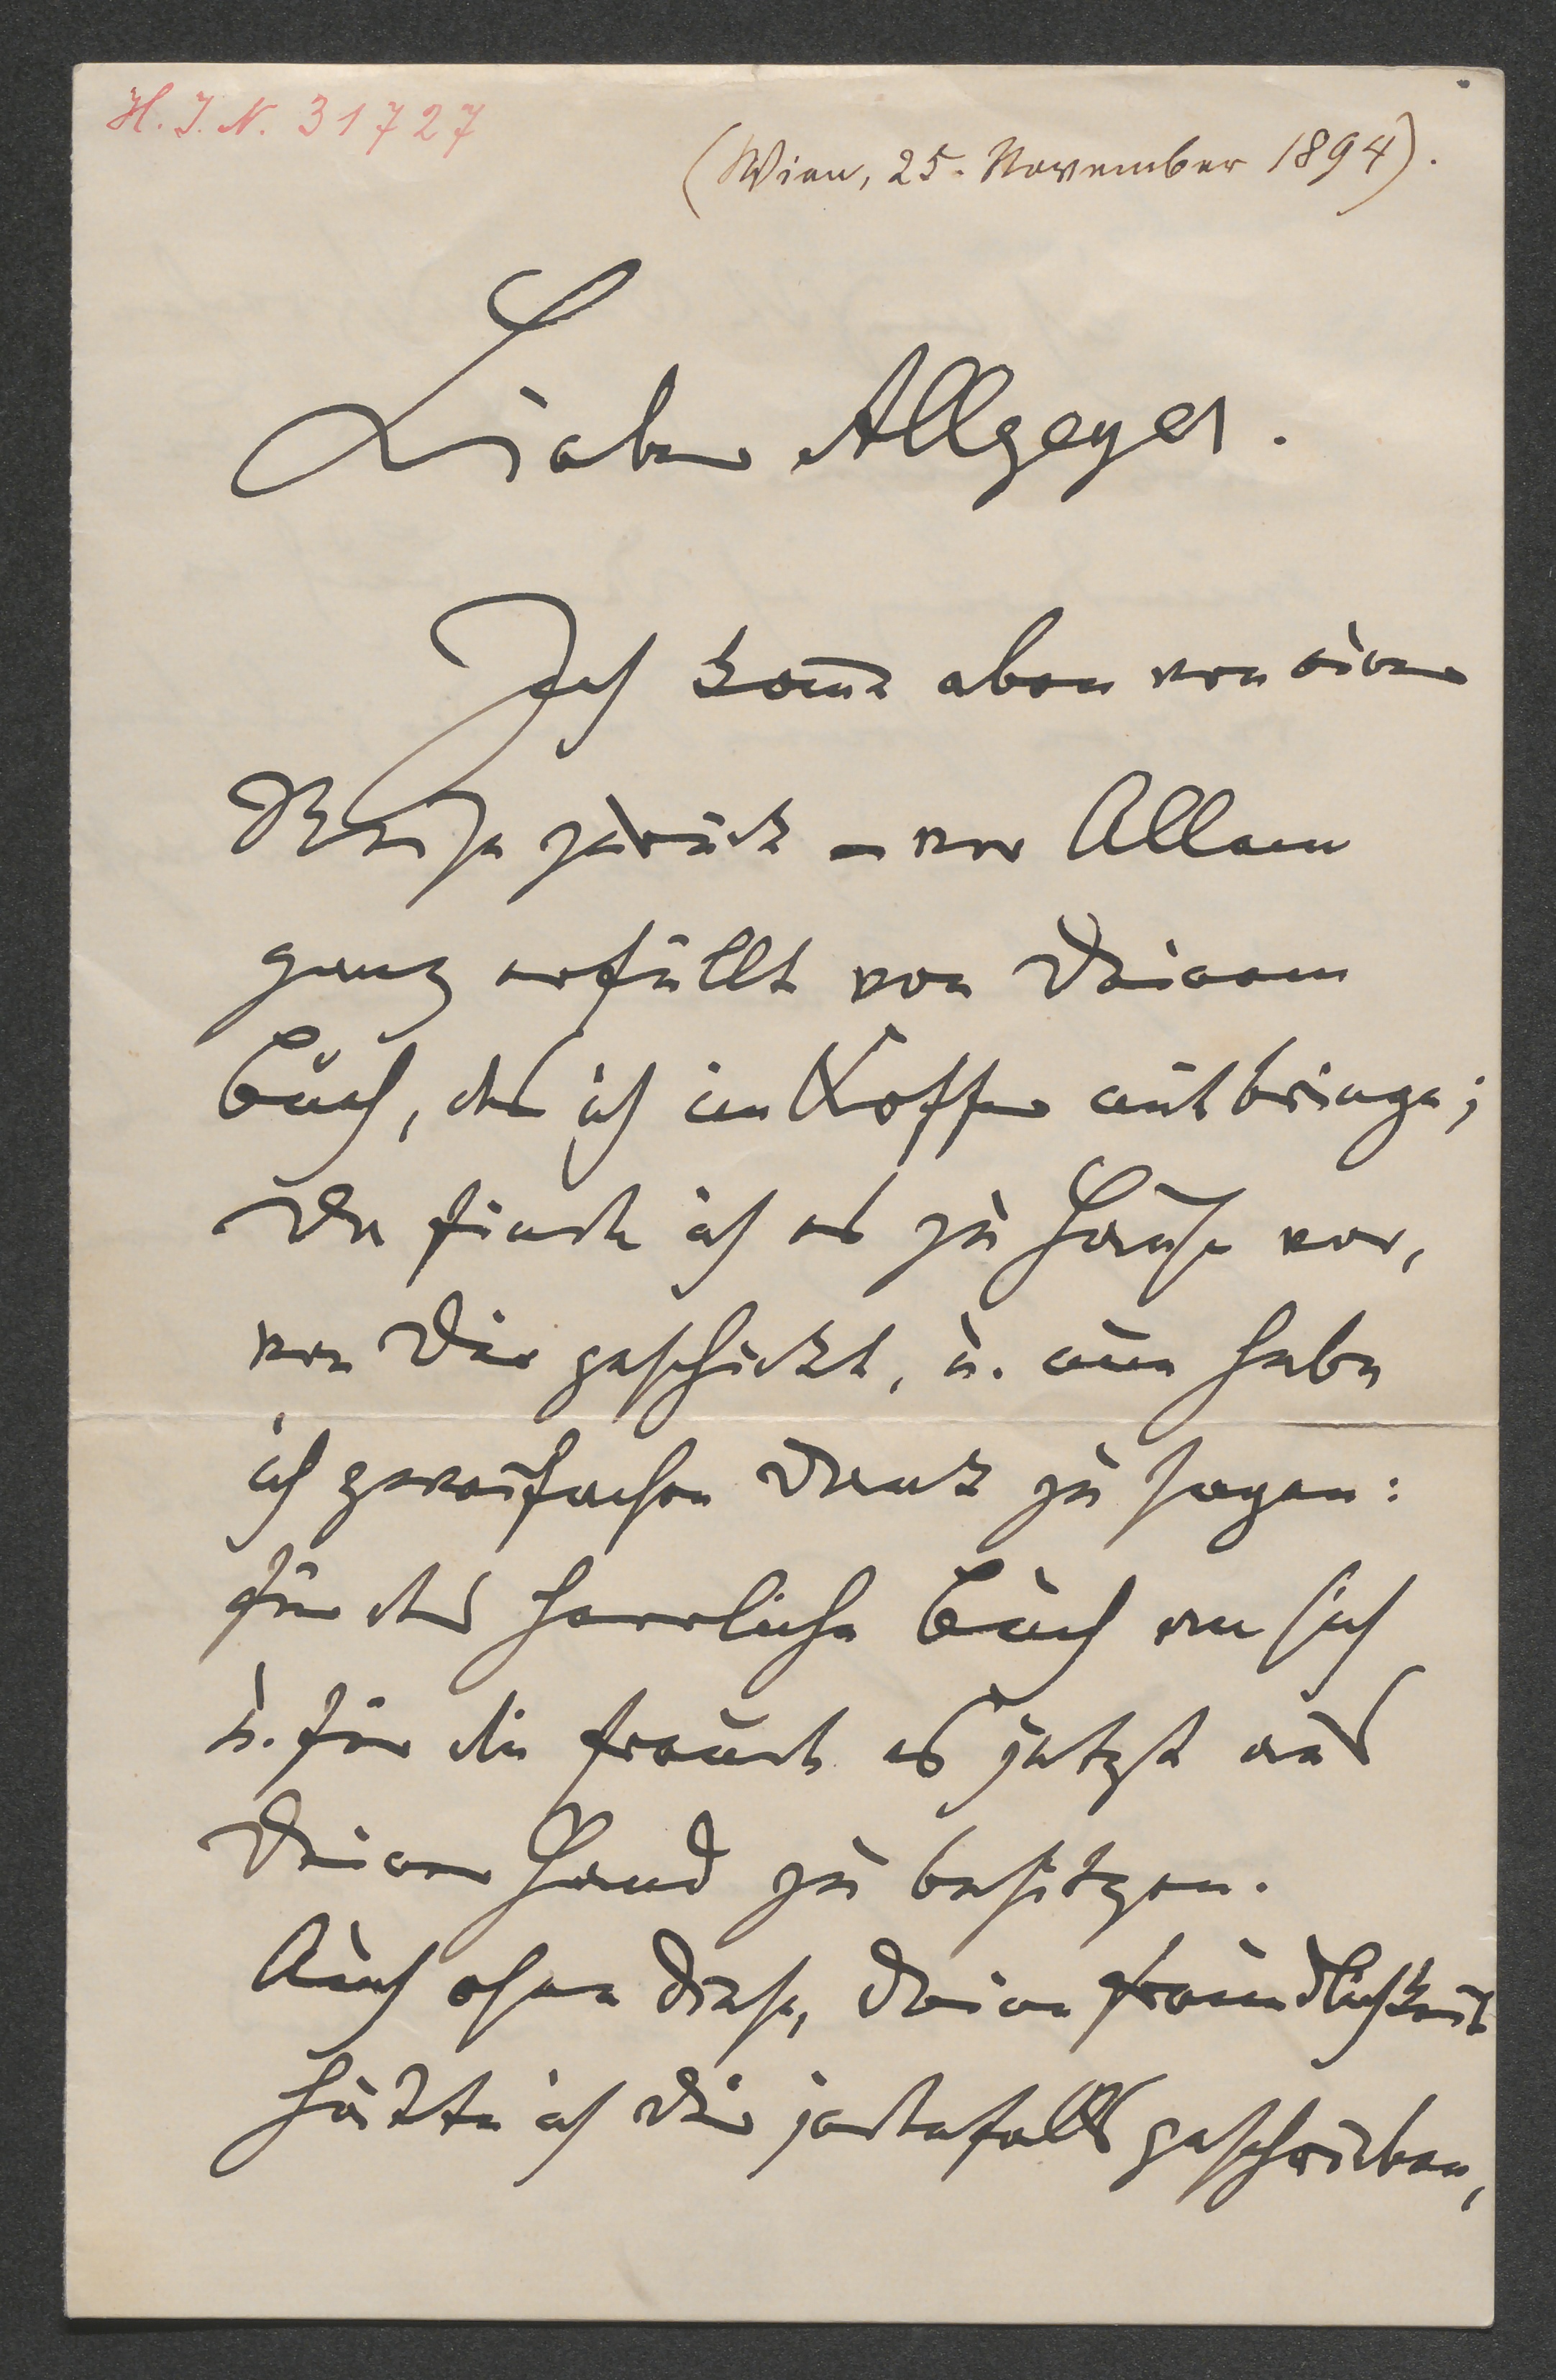 H. J. N. 31727
(Wien, 25. November 1894).
Lieber Allgeyer.
Ich kom̅e eben von einer
Reise zurück – vor Allem
ganz erfüllt von Deinem
Buch, das ich im Koffer mitbringe;
Da finde ich es zu Hause vor,
von Dir geschickt, u. nun habe
ich zweifachen Dank zu sagen:
für das herrliche Buch an sich
u. für die Freude es jetzt aus
Deiner Hand zu besitzen.
Auch ohne diese, Deine Freundlichkeit
hätte ich Dir jedenfalls geschrieben,